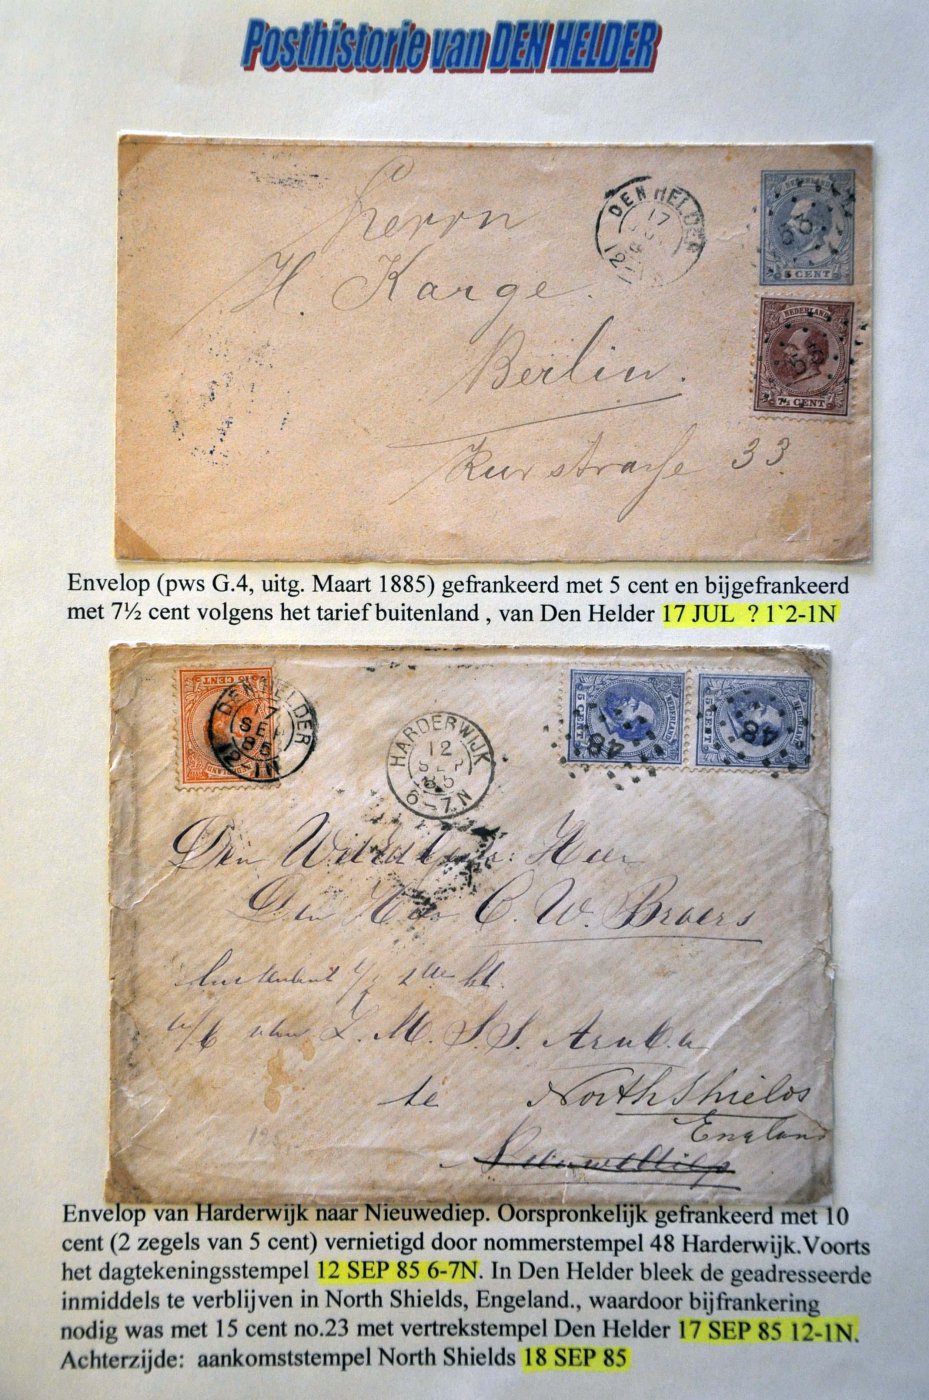 Posthistorie van DEN HELDER
Herrn
H. Karge.
Berlin.
Kurstrasse 33.
DEN HELDER
17
NEDERLAND
5 CENT
NEDERLAND
7½ CENT
Envelop (pws G.4, uitg. Maart 1885) gefrankeerd met 5 cent en bijgefrankeerd
met 7½ cent volgens het tarief buitenland , van Den Helder 17 JUL ? 1`2-1N
15 CENT
DEN HELDER
17
SEP
85
12-1N
HARDERWIJK
12
SEP
85
6-7N
5 CENT
48
5 CENT
48
Den Heer C. W. Broers
te North Shields
England
Nieuwediep
Envelop van Harderwijk naar Nieuwediep. Oorspronkelijk gefrankeerd met 10
cent (2 zegels van 5 cent) vernietigd door nommerstempel 48 Harderwijk.Voorts
het dagtekeningsstempel 12 SEP 85 6-7N. In Den Helder bleek de geadresseerde
inmiddels te verblijven in North Shields, Engeland., waardoor bijfrankering
nodig was met 15 cent no.23 met vertrekstempel Den Helder 17 SEP 85 12-1N.
Achterzijde: aankomststempel North Shields 18 SEP 85